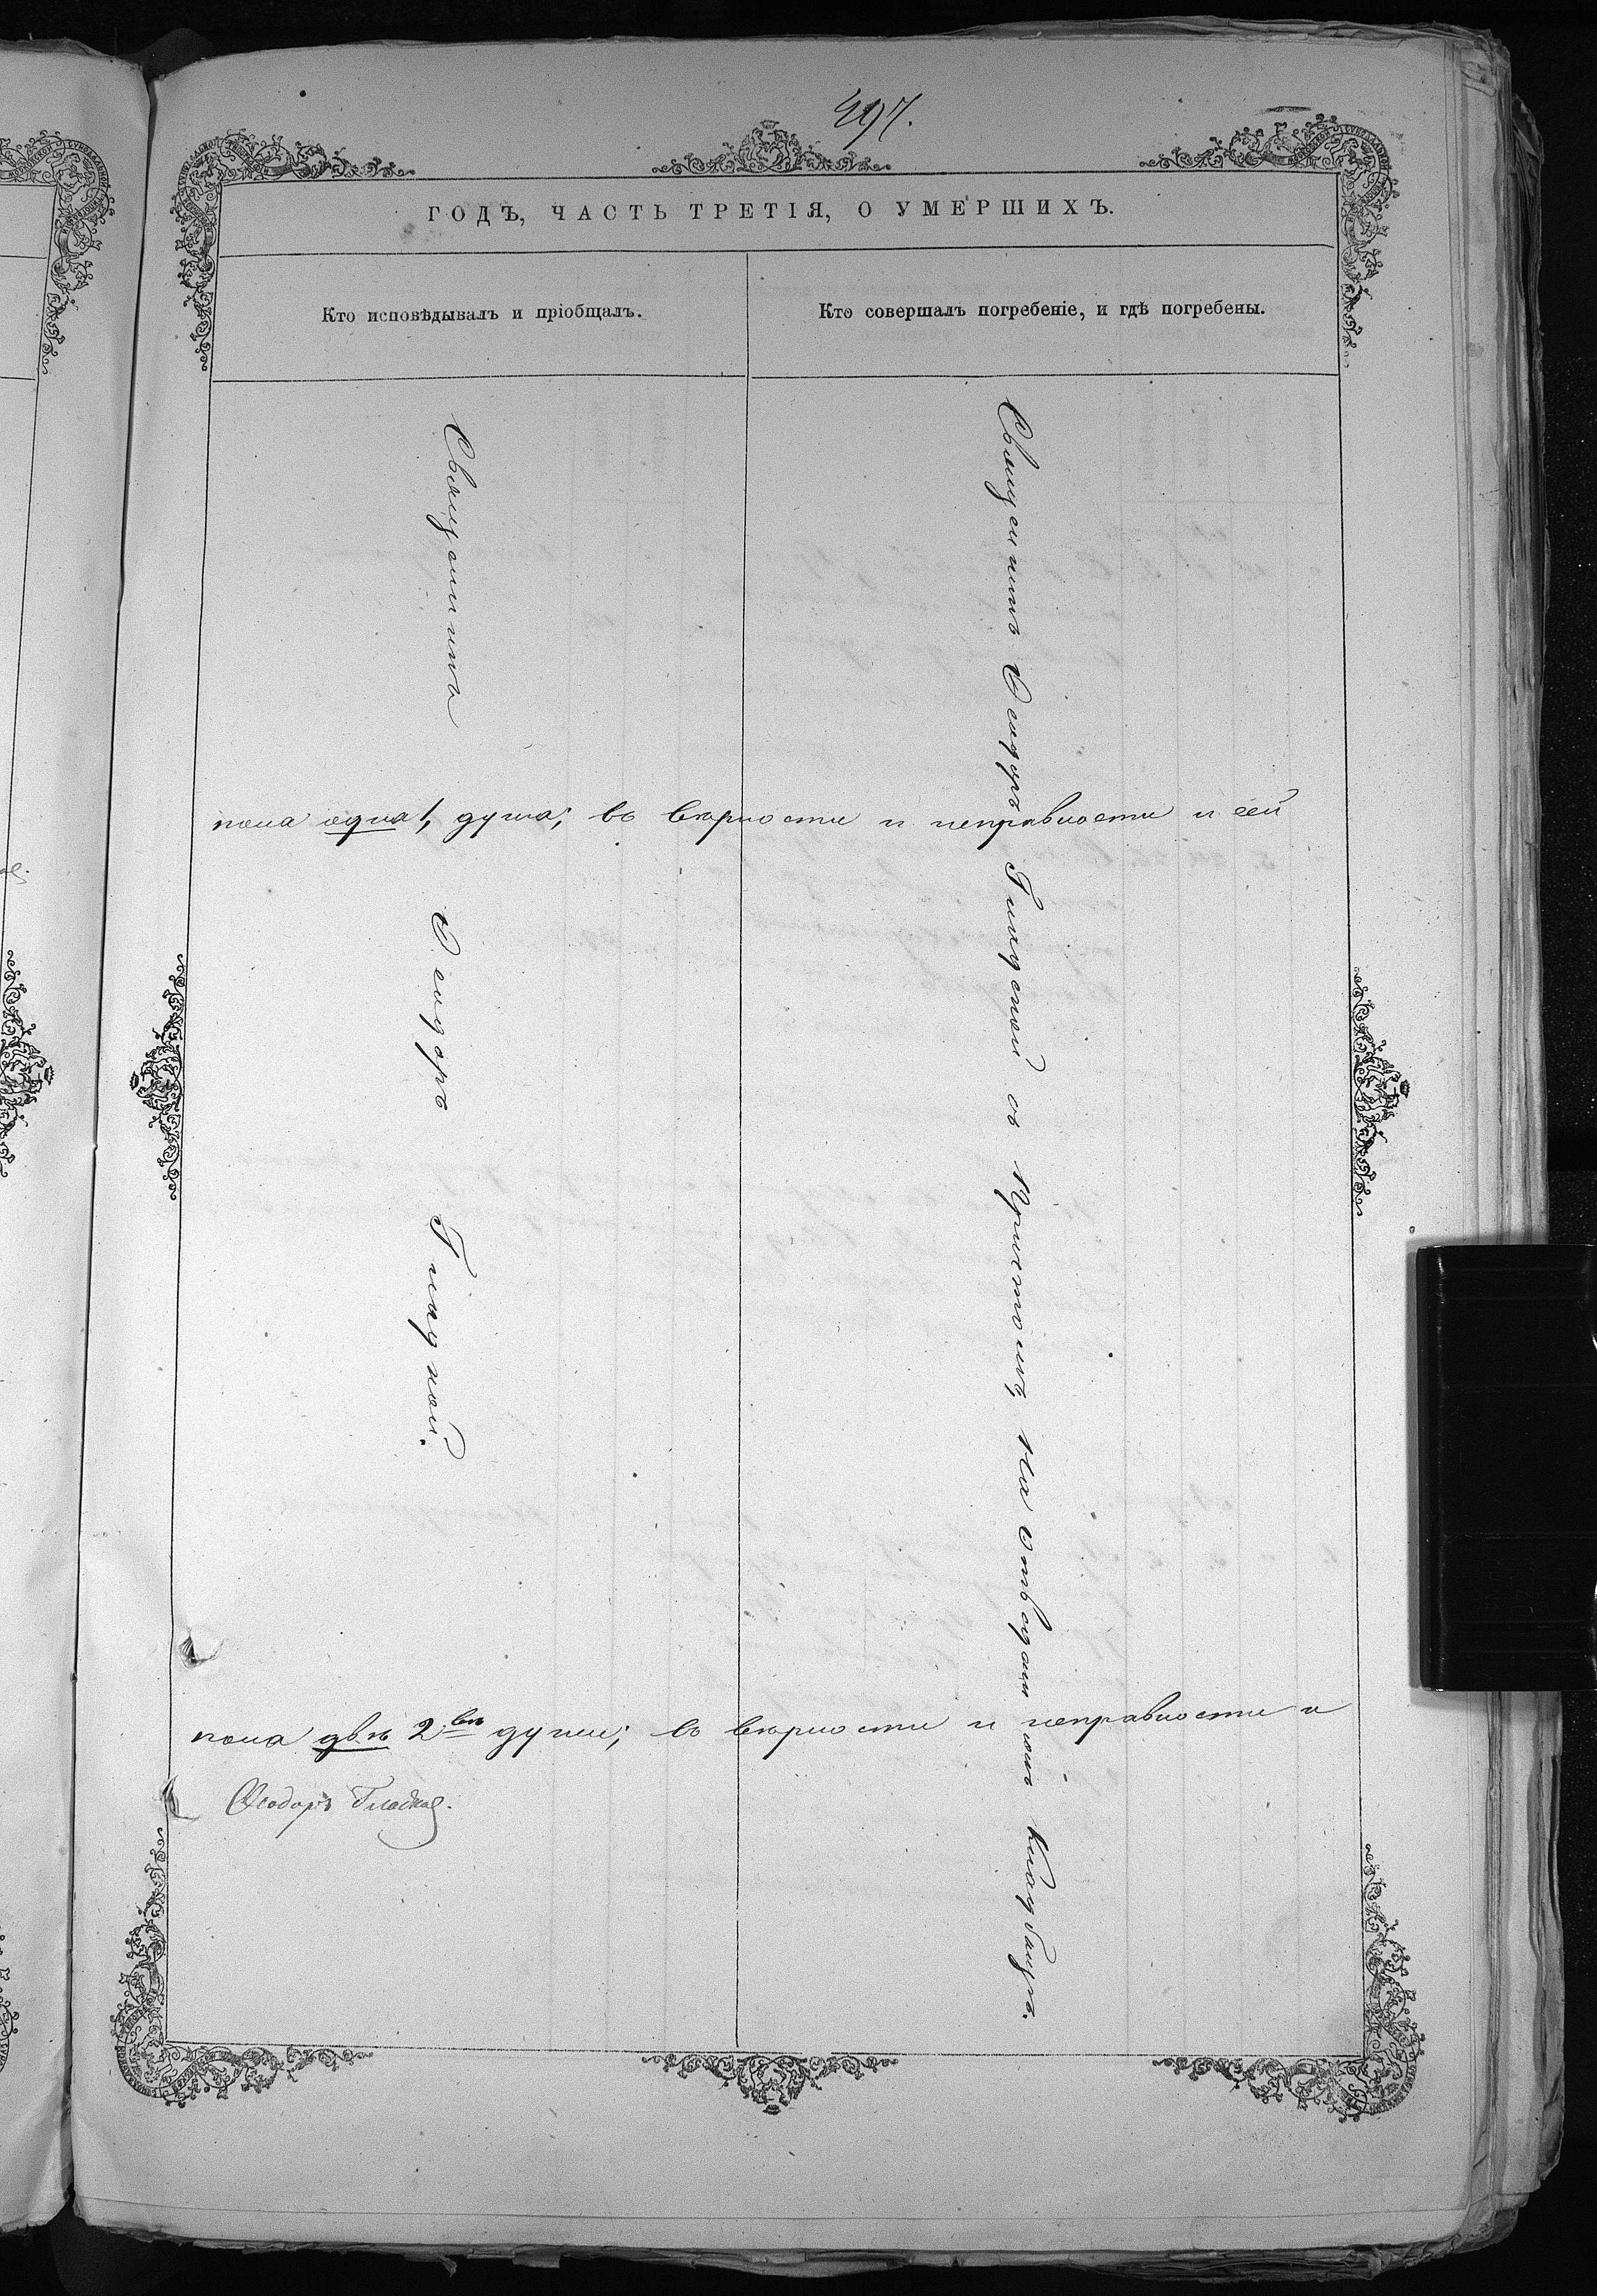 497.
ГОДЪ, ЧАСТЬ ТРЕТІЯ, О УМЕРШИХЪ.
Кто исповѣдывалъ и пріобщалъ.
Кто совершалъ погребеніе, и гдѣ погребены.
Священникъ Ѳеодоръ Гладкой.
Священникъ Ѳеодоръ Гладкой съ Причтомъ на отведенномъ кладбищѣ.
пола одна 1, душа; въ вѣрности и неправности и сей
пола двѣ 2 души; въ вѣрности и неправности и
Ѳеодоръ Гладкой.